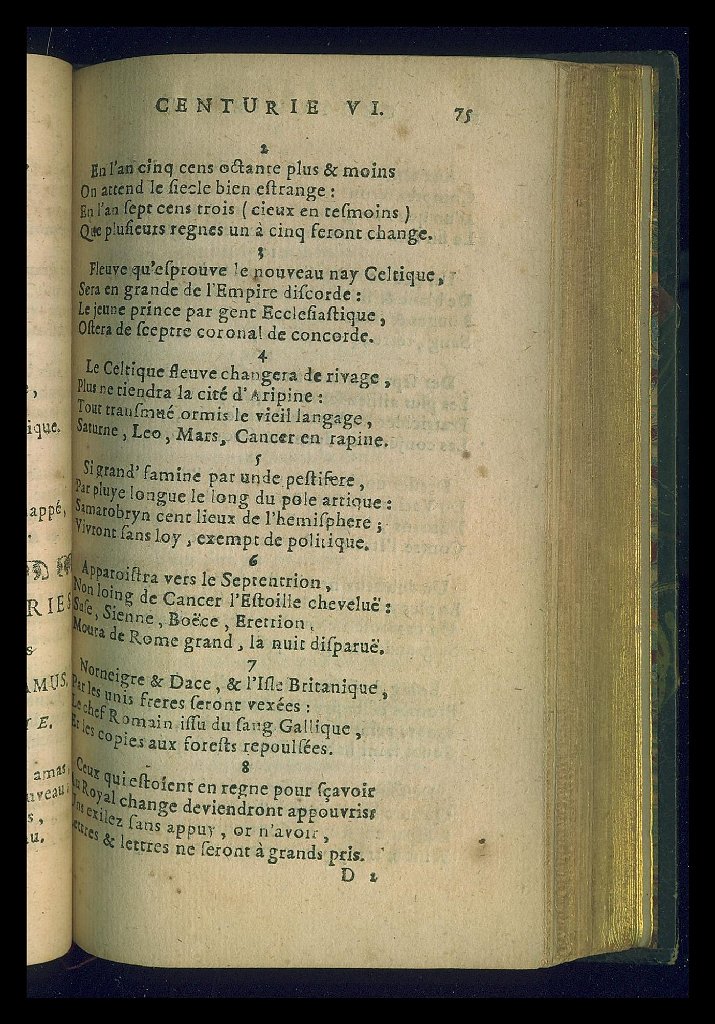 CENTURIE VI. 75
2
En l'an cinq cens octante plus & moins
On attend le ſiecle bien eſtrange :
En l'an ſept cens trois ( cieux en teſmoins )
Que pluſieurs regnes un à cinq feront change.
3
Fleuve qu'eſprouve le nouveau nay Celtique,
Sera en grande de l'Empire diſcorde :
Le jeune prince par gent Eccleſiaſtique,
Oſtera de ſceptre coronal de concorde.
4
Le Celtique fleuve changera de rivage,
Plus ne tiendra la cité d'Aripine :
Tout tranſmué ormis le vieil langage,
Saturne, Leo, Mars, Cancer en rapine.
5
Si grand' famine par unde peſtifere,
Par pluye longue le long du pole artique :
Samarobryn cent lieux de l'hemiſphere ;
Vivront ſans loy, exempt de politique.
6
Apparoiſtra vers le Septentrion,
Non loing de Cancer l'Eſtoille cheveluë :
Suſe, Sienne, Boëce, Eretrion,
Moura de Rome grand, la nuit diſparuë.
7
Norneigre & Dace, & l'Iſle Britanique,
Par les unis freres ſeront vexées :
Le chef Romain iſſu du ſang Gallique,
Et les copies aux foreſts repoulſées.
8
Ceux qui eſtoient en regne pour ſçavoir
Au Royal change deviendront appouvris:
Uns exilez ſans appuy, or n'avoir,
Lettrez & lettres ne ſeront à grands pris.
D 2
ique.
appé,
RIES
AMUS.
E.
amas
uveau